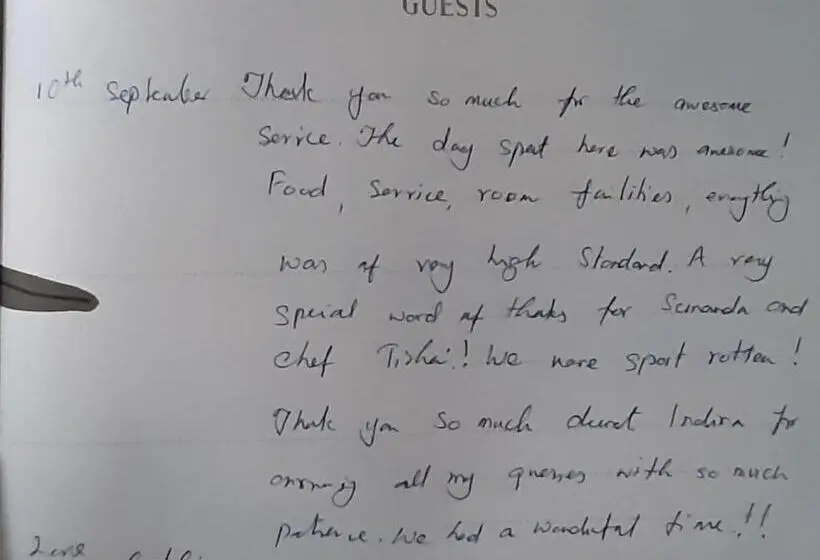 GUESTS
10th September Thank you so much for the awesome
service. The day spent here was awesome!
Food, Service, room facilities, everything
was of very high Standard. A very
special word of thanks for Sunanda and
chef Tisha! We were spoilt rotten!
Thank you so much dearest Indira for
answering all my queries with so much
patience. We had a wonderful time!!